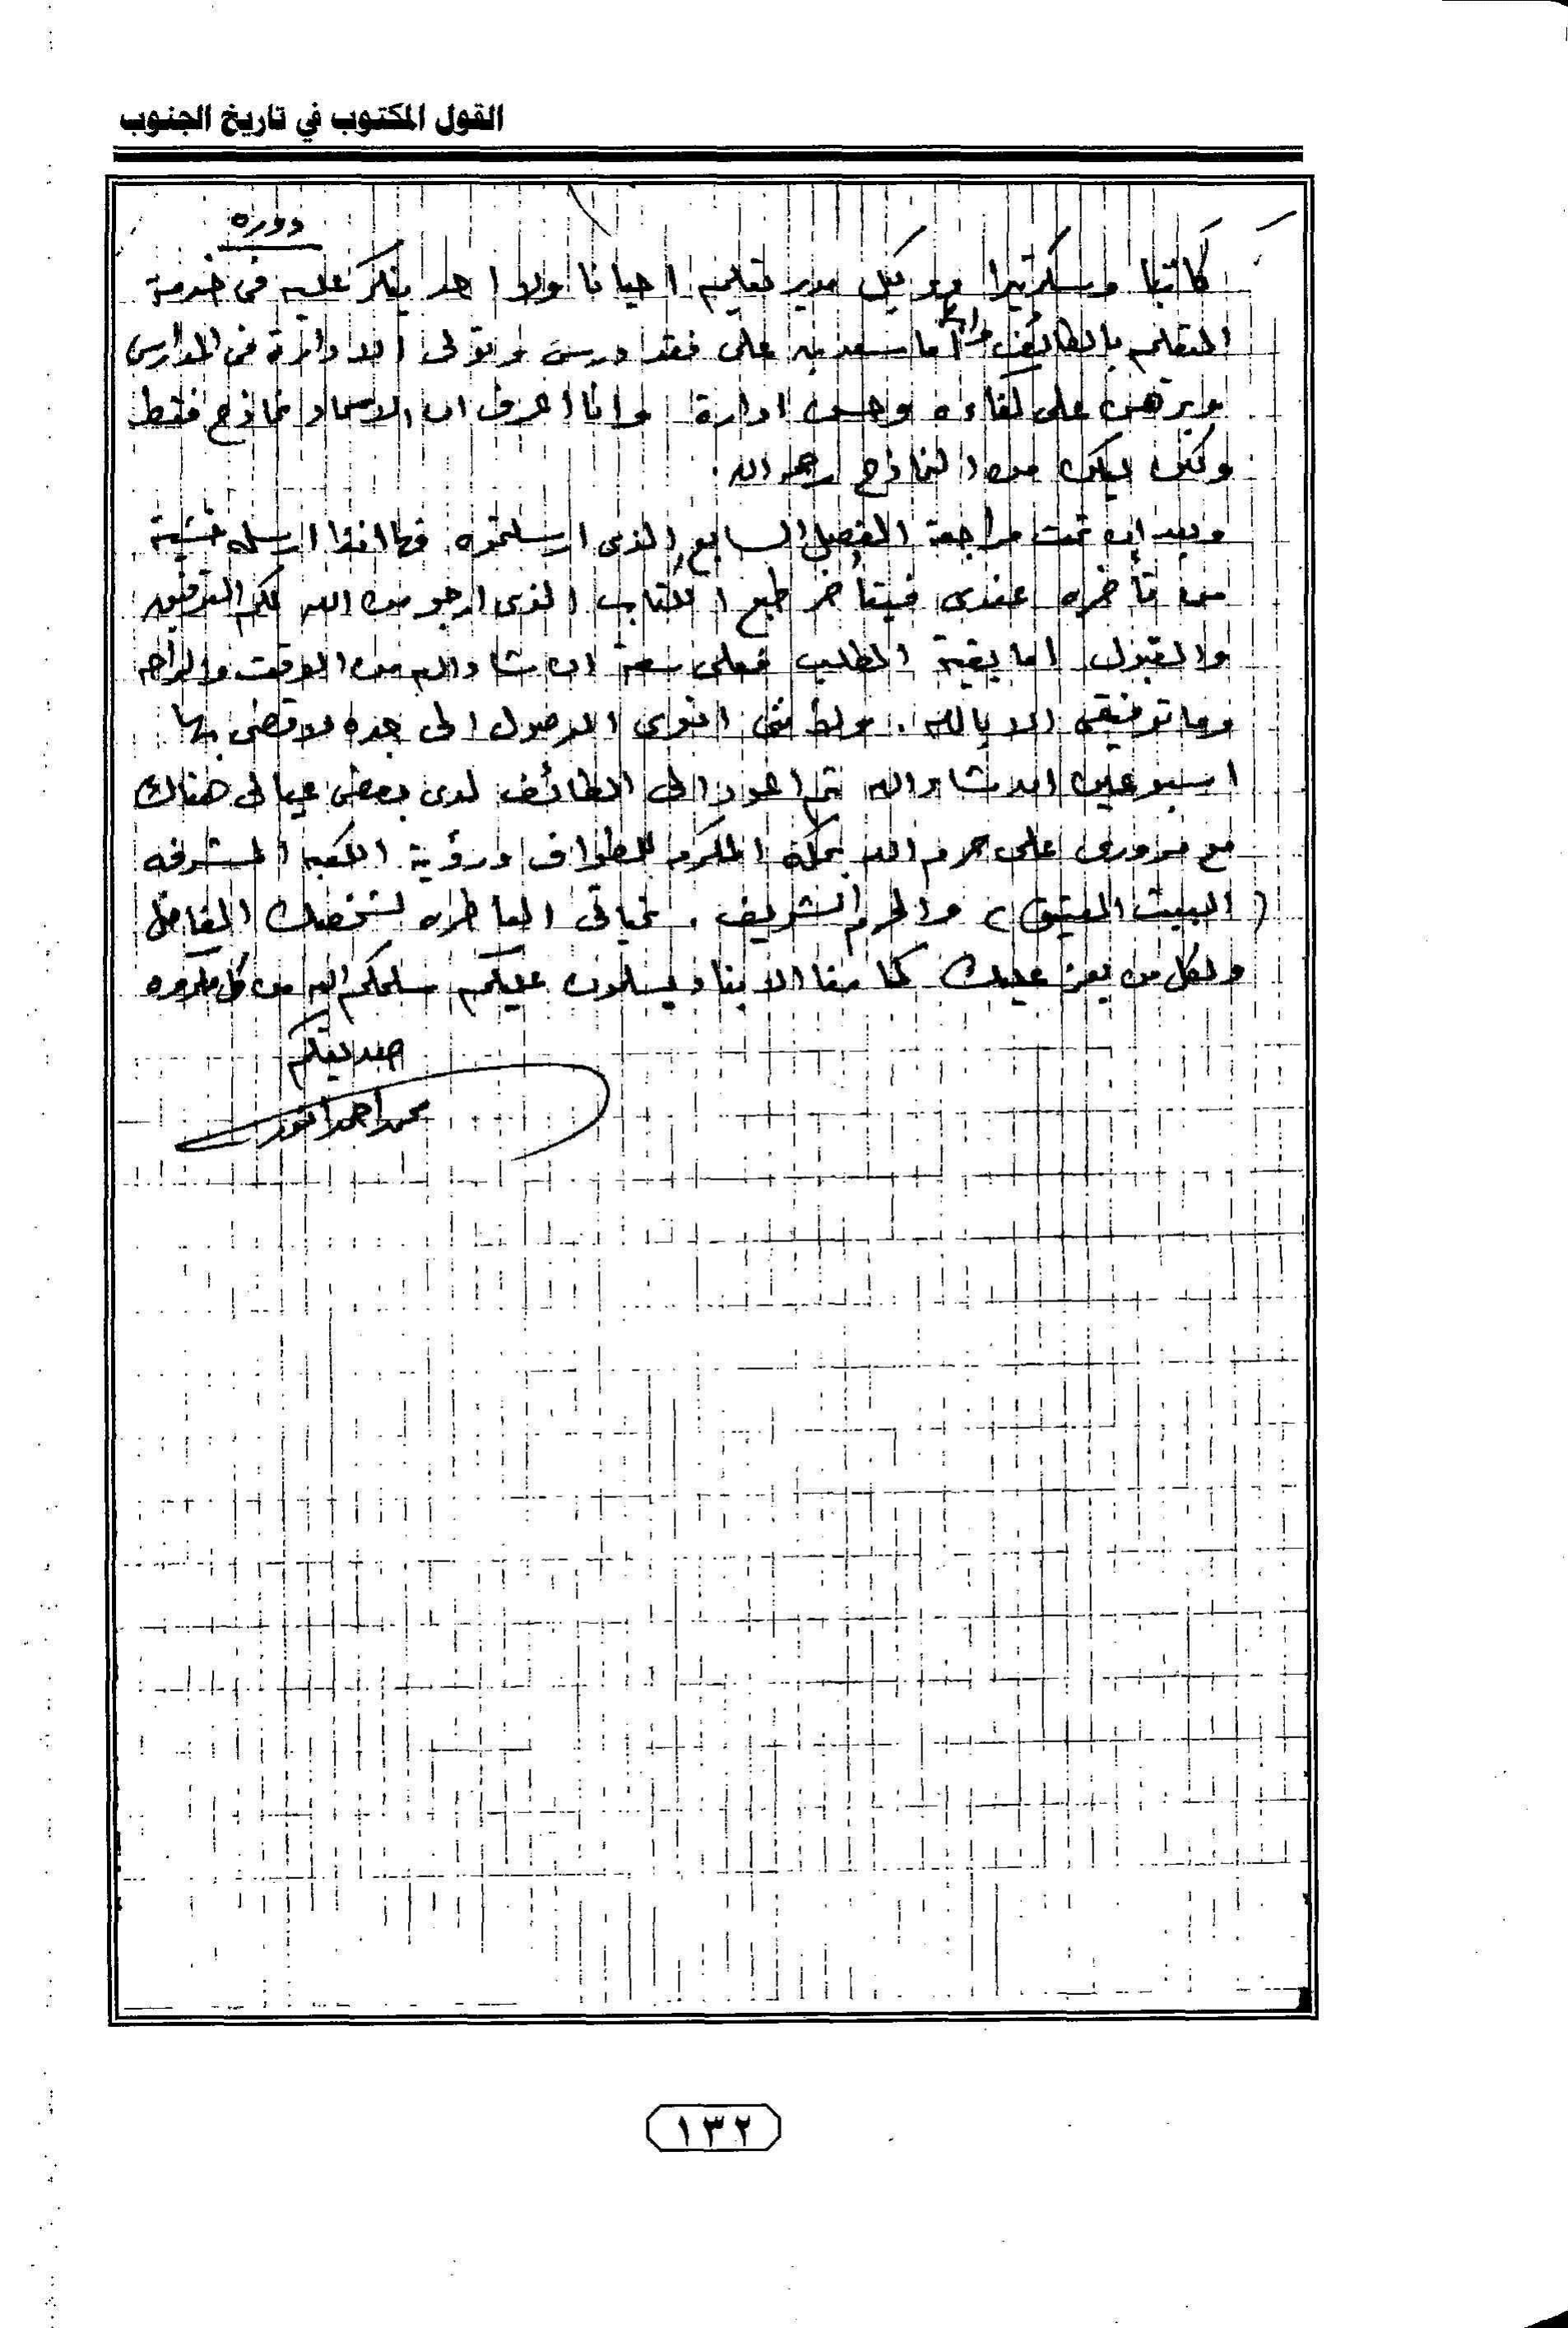 القول المكتوب في تاريخ الجنوب
دوره
كاتبا وسكرتيرا ووكيل مدير تعليم احيانا ولا احد ينكر عليه في خدمة
التعليم بالطائف اما سعد بن علي فقد درس وتولى الادارة في المدارس
وبرهن على كفاءه وحسن ادارة وانا اعرف ان الاسماء نماذج فقط
ولكن ليكن من النماذج رحمه الله.
وبعد ان تمت مراجعة الفصل السابع الذي ارسلتموه فها انذا ارسله خشية
من تأخره عندي فيتأخر طبع الكتاب الذي ارجو من الله لكم التوفيق
والقبول اما بقية الطلب فعلى سعة ان شاء الله من الوقت والراحه
وما توفيقي الا بالله. انوي الوصول الى جده لاقضي بها
اسبوعين ان شاء الله ثم اعود الى الطائف لدى بعض عيالي هناك
مع مروري على حرم الله بمكة المكرمه للطواف ورؤية الكعبه المشرفه
(البيت العتيق) والحرم الشريف. تحياتي العاطره لشخصك الفاضل
ولكل من يعز عليك كما منا الابناء يسلمون عليكم سلمكم الله من كل مكروه
صديقكم
محمد احمد انور
١٣٢